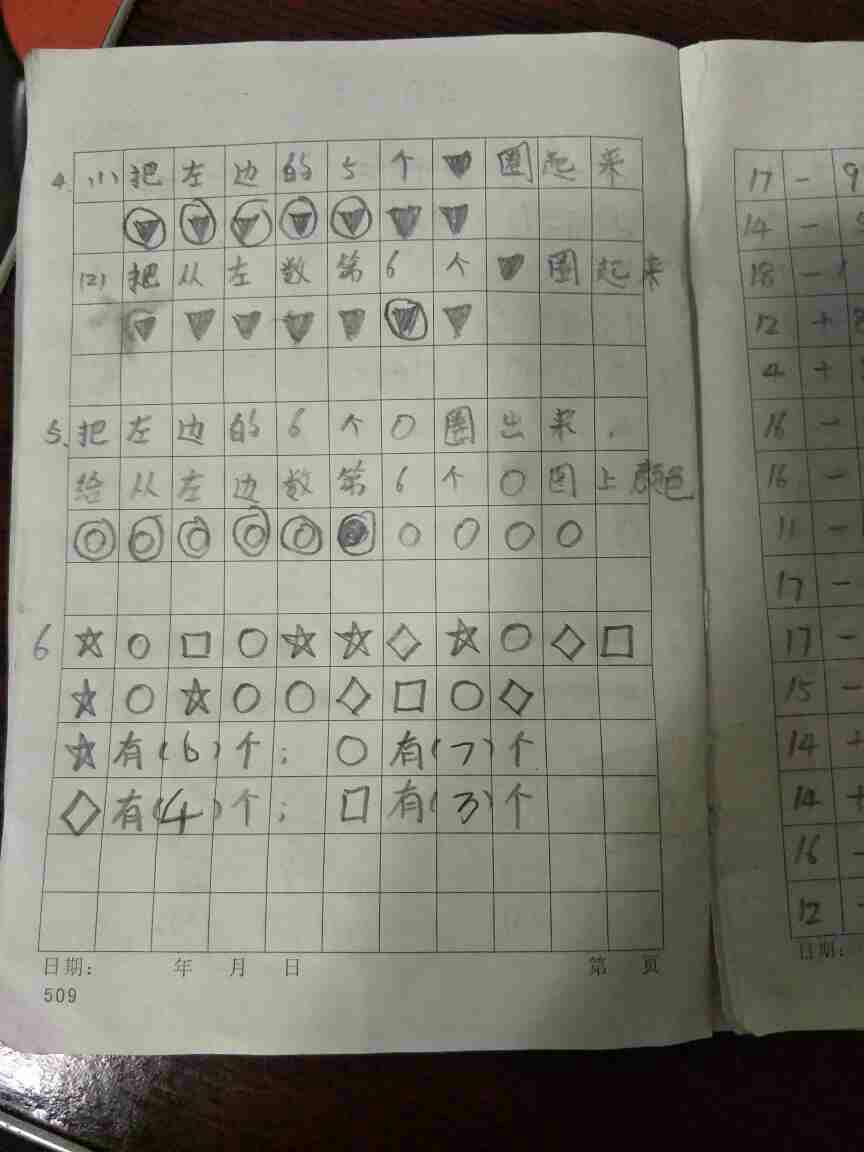 4. (1) 把左边的5个▼圈起来
▼▼▼▼▼▼▼
(2) 把从左数第6个▼圈起来
▼▼▼▼▼▼▼
5、把左边的6个○圈出来.
给从左边数第6个○图上颜色
○○○○○●○○○○
6 ☆○□○☆☆◇☆○◇□
☆○☆○○◇□○◇
☆有(6)个; ○有(7)个
◇有(4)个; □有(3)个
日期: 年 月 日 第 页
509
17 - 9
14 -
18 -
12 +
4 +
16 -
16 -
11 -
17 -
17 -
15 -
14 +
14 +
16 -
12 -
日期: